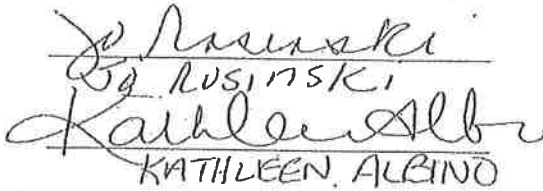 Jo Rusinski
Jo RUSINSKI
Kathleen Albin
KATHLEEN ALBINO